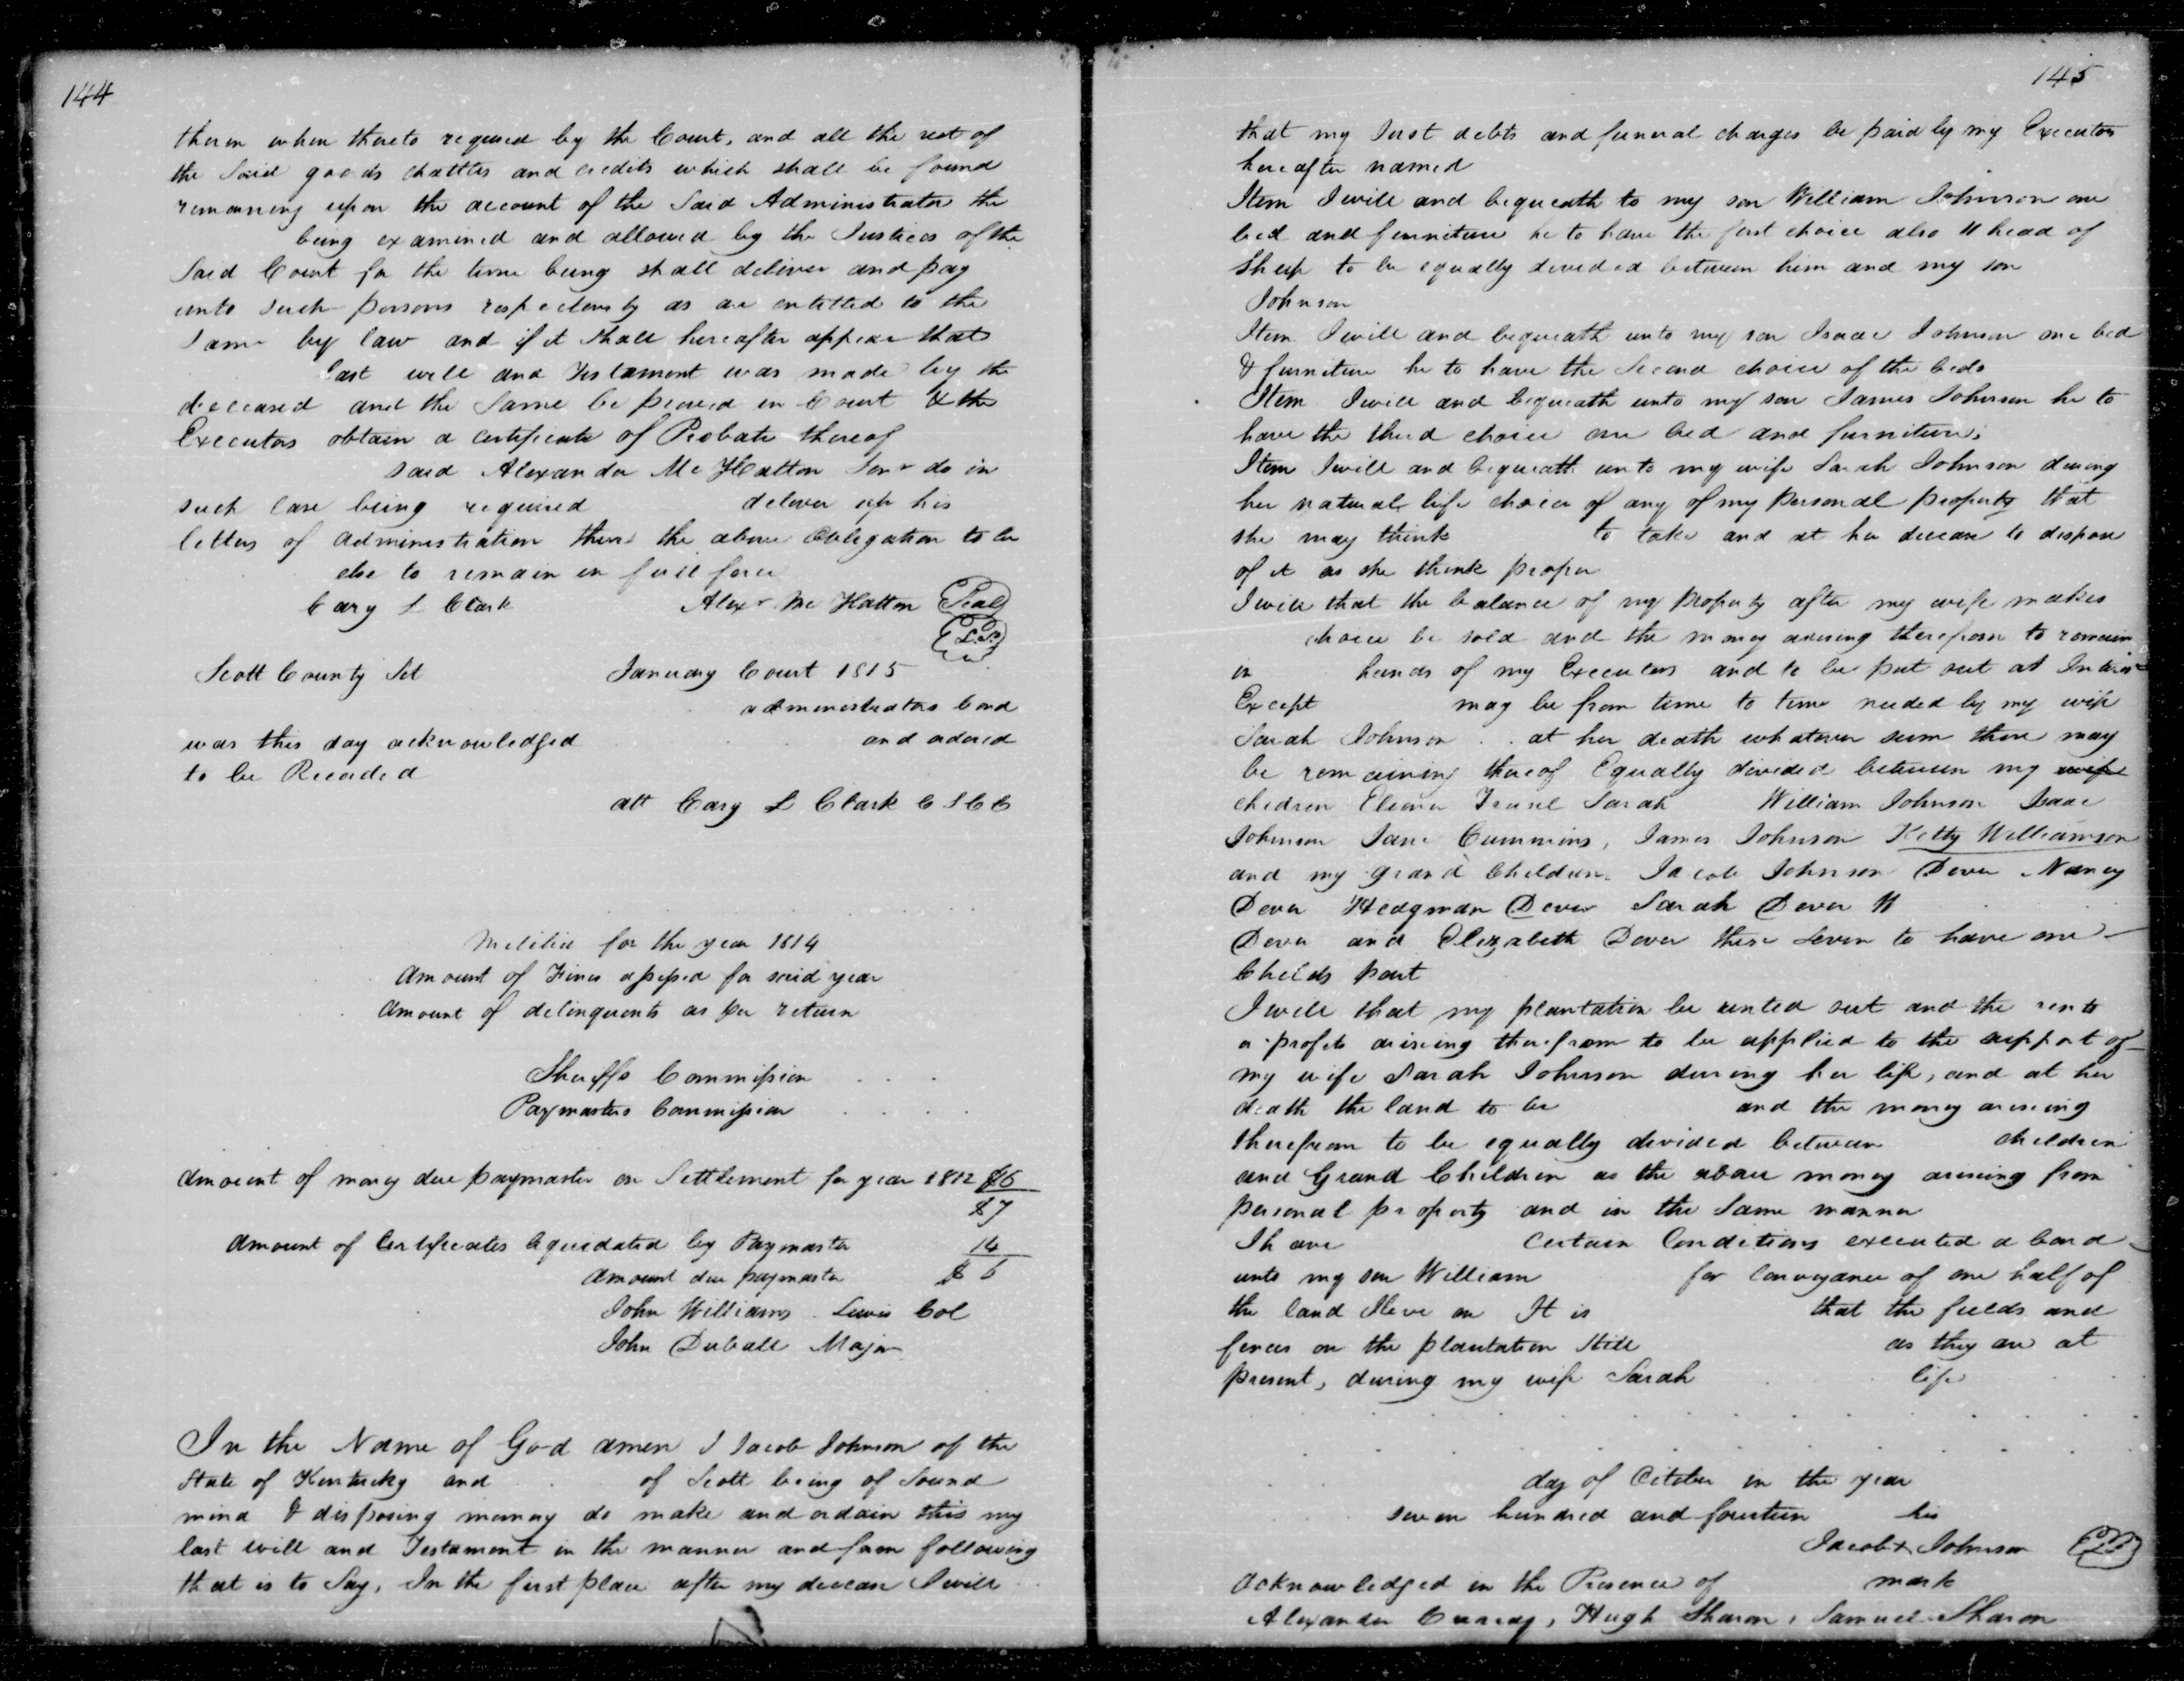 144
therein when thereto required by the Court, and all the rest of
the Said goods chattles and credits which shall be found
remaining upon the account of the Said Administrator the
being examined and allowed by the Justices of the
Said Court for the time being shall deliver and pay
unto such persons respectively as are entitled to the
Same by law and if it shall hereafter appear that
last will and Testament was made by the
deceased and the Same be proved in Court & the
Executors obtain a certificate of Probate thereof
said Alexander Mc Hatton Senr do in
such case being required deliver up his
letters of Administration then the above Obligation to be
else to remain in full force
Cary L Clark Alexr Mc Hatton Seal
L.S.
Scott County Sct January Court 1815
administrators bond
was this day acknowledged and ordered
to be Recorded
att Cary L Clark C S C C
Militia for the year 1814
Amount of Fines assessed for said year
Amount of delinquents as per return
Sheriffs Commission
Paymasters Commission
Amount of money due paymaster on Settlement for year 1812 $6
$7
Amount of Certificates liquidated by Paymaster 14
Amount due paymaster $ 6
John Williams Lewis Col
John Duvall Major
In the Name of God amen I Jacob Johnson of the
State of Kentucky and of Scott being of Sound
mind & disposing memory do make and ordain this my
last will and Testament in the manner and form following
that is to Say, In the first place after my decease I will
145
that my Just debts and funeral charges be paid by my Executors
hereafter named
Item I will and bequeath to my son William Johnson one
bed and furniture he to have the first choice also 11 head of
Sheep to be equally devided between him and my son
Johnson
Item I will and bequeath unto my son Isaac Johnson one bed
& furniture he to have the Second choice of the beds
Item I will and bequeath unto my son James Johnson he to
have the third choice one bed and furniture,
Item I will and bequeath unto my wife Sarah Johnson during
her natural life choice of any of my personal property that
she may think to take and at her decease to dispose
of it as she think proper
I will that the balance of my property after my wife makes
choice be sold and the money arising therefrom to remain
in hands of my Executors and to be put out at Interest
Except may be from time to time needed by my wife
Sarah Johnson at her death whatever sum there may
be remaining thereof Equally divided between my wife
children Sarah William Johnson Isaac
Johnson Jane Cummins, James Johnson Ketty Williamson
and my grand Children Jacob Johnson Dever Nancy
Dever Hedgman Dever Sarah Dever
Dever and Elizabeth Dever these Seven to have one
Childs part
I will that my plantation be rented out and the rents
or profits arising therefrom to be applied to the support of
my wife Sarah Johnson during her life, and at her
death the land to be and the money arising
therefrom to be equally divided between children
and Grand Children as the above money arising from
personal property and in the Same manner
I have certain Conditions executed a bond
unto my son William for conveyance of one half of
the land I live on It is that the fields and
fences on the plantation Still as they are at
present, during my wife Sarah life
day of October in the year
seven hundred and fourteen his
Jacob x Johnson LS
Acknowledged in the Presence of mark
Alexander Hugh Sharon, Samuel Sharon